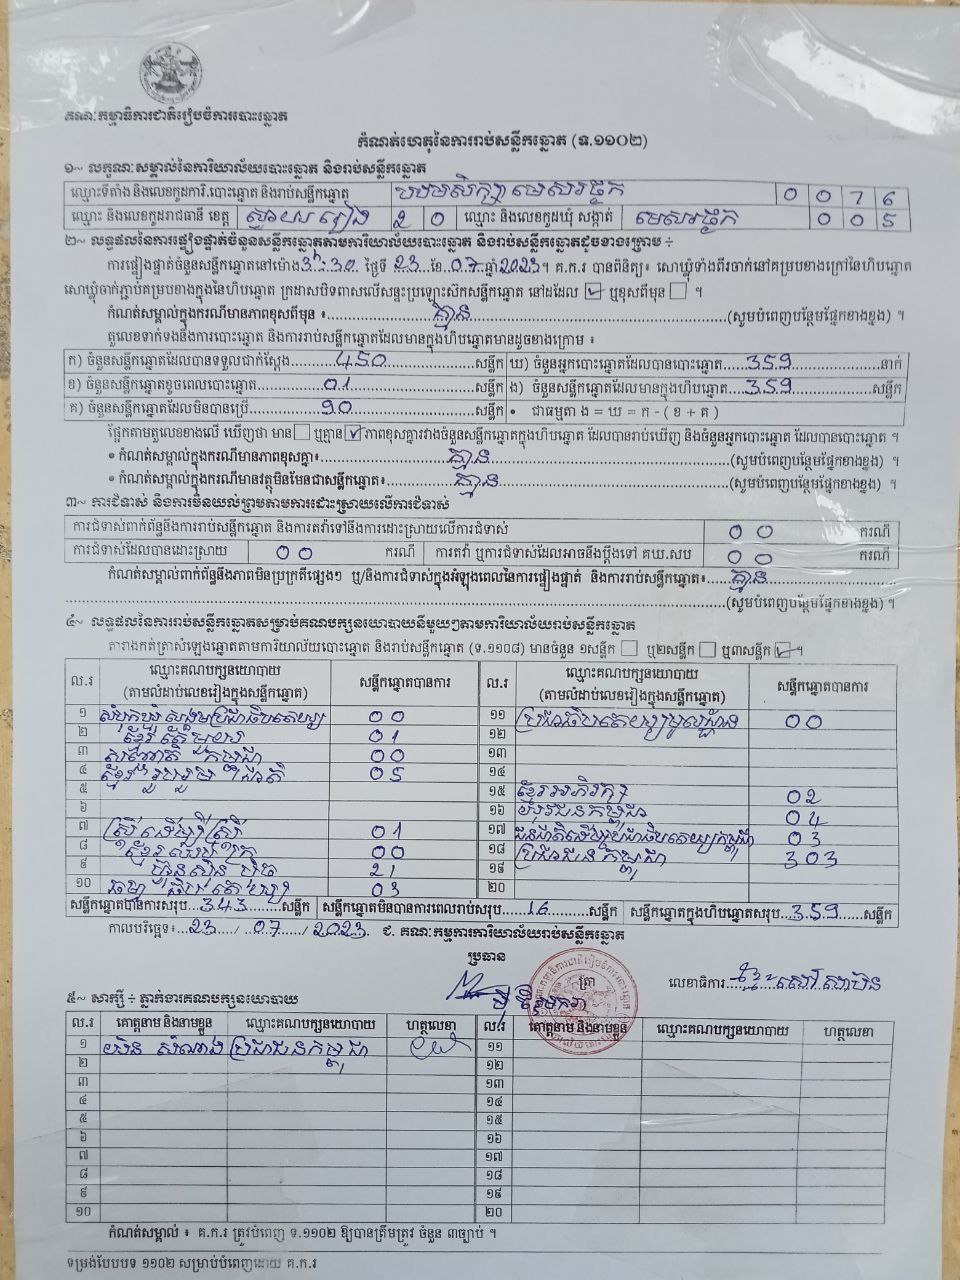 គណៈកម្មាធិការជាតិរៀបចំការបោះឆ្នោត
កំណត់ហេតុនៃការរាប់សន្លឹកឆ្នោត (ទ.១១០២)
១~ លក្ខណៈសម្គាល់នៃការិយាល័យបោះឆ្នោត និងរាប់សន្លឹកឆ្នោត
ឈ្មោះទីតាំង និងលេខកូដការិ.បោះឆ្នោត និងរាប់សន្លឹកឆ្នោត បឋមសិក្សា មេសរថ្ងក 0 0 7 6
ឈ្មោះ និងលេខកូដរាជធានី ខេត្ត ស្វាយរៀង 2 0 ឈ្មោះ និងលេខកូដឃុំ សង្កាត់ មេសរថ្ងក 0 0 5
២~ លទ្ធផលនៃការផ្ទៀងផ្ទាត់ចំនួនសន្លឹកឆ្នោតតាមការិយាល័យបោះឆ្នោត និងរាប់សន្លឹកឆ្នោតដូចខាងក្រោម ÷
ការផ្ទៀងផ្ទាត់ចំនួនសន្លឹកឆ្នោតនៅម៉ោង 3:30 ថ្ងៃទី 23 ខែ 07 ឆ្នាំ 2023 ។ គ.ក.រ បានពិនិត្យ៖ សោឃ្លុំទាំងពីរចាក់នៅគម្របខាងក្រៅនៃហិបឆ្នោត
សោឃ្លុំចាក់ភ្ជាប់គម្របខាងក្នុងនៃហិបឆ្នោត ក្រដាសបិទពាសលើសន្ទះប្រឡោះស៊កសន្លឹកឆ្នោត នៅដដែល ឬខុសពីមុន ។
កំណត់សម្គាល់ក្នុងករណីមានភាពខុសពីមុន ៖ គ្មាន (សូមបំពេញបន្ថែមផ្នែកខាងខ្នង) ។
តួលេខទាក់ទងនឹងការបោះឆ្នោត និងការរាប់សន្លឹកឆ្នោតដែលមានក្នុងហិបឆ្នោតមានដូចខាងក្រោម ៖
ក) ចំនួនសន្លឹកឆ្នោតដែលបានទទួលជាក់ស្តែង 450 សន្លឹក ឃ) ចំនួនអ្នកបោះឆ្នោតដែលបានបោះឆ្នោត 359 នាក់
ខ) ចំនួនសន្លឹកឆ្នោតខូចពេលបោះឆ្នោត 01 សន្លឹក ង) ចំនួនសន្លឹកឆ្នោតដែលមានក្នុងហិបឆ្នោត 359 សន្លឹក
គ) ចំនួនសន្លឹកឆ្នោតដែលមិនបានប្រើ 90 សន្លឹក • ជាធម្មតា ង = ឃ = ក - ( ខ + គ )
ផ្អែកតាមតួលេខខាងលើ ឃើញថា មាន ឬគ្មាន ភាពខុសគ្នារវាងចំនួនសន្លឹកឆ្នោតក្នុងហិបឆ្នោត ដែលបានរាប់ឃើញ និងចំនួនអ្នកបោះឆ្នោត ដែលបានបោះឆ្នោត ។
• កំណត់សម្គាល់ក្នុងករណីមានភាពខុសគ្នា៖ គ្មាន (សូមបំពេញបន្ថែមផ្នែកខាងខ្នង) ។
• កំណត់សម្គាល់ក្នុងករណីមានវត្ថុមិនមែនជាសន្លឹកឆ្នោត៖ គ្មាន (សូមបំពេញបន្ថែមផ្នែកខាងខ្នង) ។
៣~ ការជំទាស់ និងការមិនយល់ព្រមតាមការដោះស្រាយលើការជំទាស់
ការជំទាស់ពាក់ព័ន្ធនឹងការរាប់សន្លឹកឆ្នោត និងការតវ៉ាទៅនឹងការដោះស្រាយលើការជំទាស់ 0 0 ករណី
ការជំទាស់ដែលបានដោះស្រាយ 0 0 ករណី ការតវ៉ា ឬការជំទាស់ដែលអាចនឹងប្តឹងទៅ គឃ.សប 0 0 ករណី
កំណត់សម្គាល់ពាក់ព័ន្ធនឹងភាពមិនប្រក្រតីផ្សេងៗ ឬ/និងការជំទាស់ក្នុងអំឡុងពេលនៃការផ្ទៀងផ្ទាត់ និងការរាប់សន្លឹកឆ្នោត៖ គ្មាន
(សូមបំពេញបន្ថែមផ្នែកខាងខ្នង) ។
៤~ លទ្ធផលនៃការរាប់សន្លឹកឆ្នោតសម្រាប់គណបក្សនយោបាយនីមួយៗតាមការិយាល័យរាប់សន្លឹកឆ្នោត
តារាងកត់ត្រាសំឡេងឆ្នោតតាមការិយាល័យបោះឆ្នោត និងរាប់សន្លឹកឆ្នោត (ទ.១១០៨) មានចំនួន ១សន្លឹក ឬ២សន្លឹក ឬ៣សន្លឹក ។
ល.រ ឈ្មោះគណបក្សនយោបាយ (តាមលំដាប់លេខរៀងក្នុងសន្លឹកឆ្នោត) សន្លឹកឆ្នោតបានការ ល.រ ឈ្មោះគណបក្សនយោបាយ (តាមលំដាប់លេខរៀងក្នុងសន្លឹកឆ្នោត) សន្លឹកឆ្នោតបានការ
១ សំបុកឃ្មុំ សង្គមប្រជាធិបតេយ្យ 00 ១១ ប្រជាធិបតេយ្យមូលដ្ឋាន 00
២ ខ្មែរតែមួយ 01 ១២
៣ សញ្ជាតិ កម្ពុជា 00 ១៣
៤ ខ្មែររួបរួមជាតិ 05 ១៤
៥ ១៥ ខ្មែរអភិរក្ស 02
៦ ១៦ យុវជនកម្ពុជា 04
៧ ស្ត្រីដើម្បីស្ត្រី 01 ១៧ ជនជាតិដើមប្រជាធិបតេយ្យកម្ពុជា 03
៨ ខ្មែរឈប់ក្រ 00 ១៨ ប្រជាជនកម្ពុជា 303
៩ ហ៊្វុនស៊ិនប៉ិច 21 ១៩
១០ ធម្មាធិបតេយ្យ 03 ២០
សន្លឹកឆ្នោតបានការសរុប 343 សន្លឹក សន្លឹកឆ្នោតមិនបានការពេលរាប់សរុប 16 សន្លឹក សន្លឹកឆ្នោតក្នុងហិបឆ្នោតសរុប 359 សន្លឹក
កាលបរិច្ឆេទ៖ 23 / 07 / 2023 ជ. គណៈកម្មការការិយាល័យរាប់សន្លឹកឆ្នោត
ប្រធាន
ត្រា
លេខាធិការ
៥~ សាក្សី ÷ ភ្នាក់ងារគណបក្សនយោបាយ
ល.រ គោត្តនាម និងនាមខ្លួន ឈ្មោះគណបក្សនយោបាយ ហត្ថលេខា ល.រ គោត្តនាម និងនាមខ្លួន ឈ្មោះគណបក្សនយោបាយ ហត្ថលេខា
១ យិន សំណាង ប្រជាជនកម្ពុជា ១១
២ ១២
៣ ១៣
៤ ១៤
៥ ១៥
៦ ១៦
៧ ១៧
៨ ១៨
៩ ១៩
១០ ២០
កំណត់សម្គាល់ ៖ គ.ក.រ ត្រូវបំពេញ ទ.១១០២ ឱ្យបានត្រឹមត្រូវ ចំនួន ៣ច្បាប់ ។
ទម្រង់បែបបទ ១១០២ សម្រាប់បំពេញដោយ គ.ក.រ